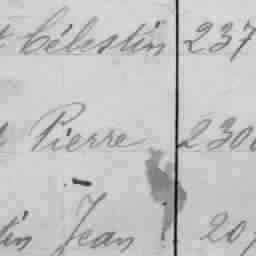 t Célestin 237
t Pierre 230
tin Jean 207